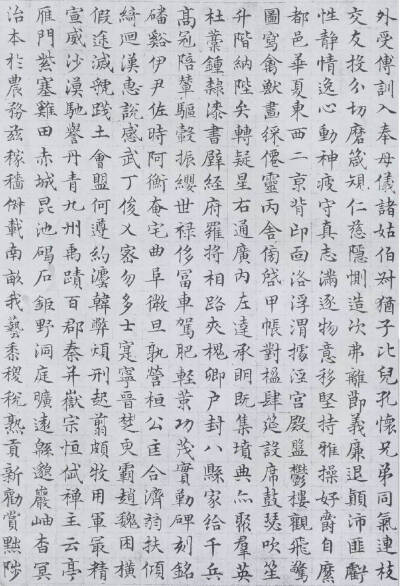 外受傅訓入奉母儀諸姑伯尗猶子比兒孔懷兄弟同氣連枝
交友投分切磨箴規仁慈隱惻造次弗離節義廉退顛沛匪虧
性靜情逸心動神疲守真志滿逐物意移堅持雅操好爵自縻
都邑華夏東西二京背邙面洛浮渭據涇宮殿盤鬱樓觀飛驚
圖寫禽獸畫綵僊靈丙舍傍啓甲帳對楹肆筵設席鼓瑟吹笙
升階納陛弁轉疑星右通廣內左達承明既集墳典亦聚群英
杜稾鍾隸漆書壁經府羅將相路夾槐卿戶封八縣家給千兵
髙冠陪輦驅轂振纓世祿侈富車駕肥輕策功茂實勒碑刻銘
磻谿伊尹佐時阿衡奄宅曲阜微旦孰營桓公匡合濟弱扶傾
綺迴漢惠說感武丁俊乂密勿多士寔寧晉楚更霸趙魏困橫
假途滅虢踐土會盟何遵約灋韓弊煩刑起翦頗牧用軍最精
宣威沙漠馳譽丹青九州禹蹟百郡秦并嶽宗恒岱禪主云亭
雁門紫塞雞田赤城昆池碣石鉅野洞庭曠遠緜邈巖岫杳冥
治本於農務茲稼穡俶載南畝我藝黍稷稅熟貢新勸賞黜陟